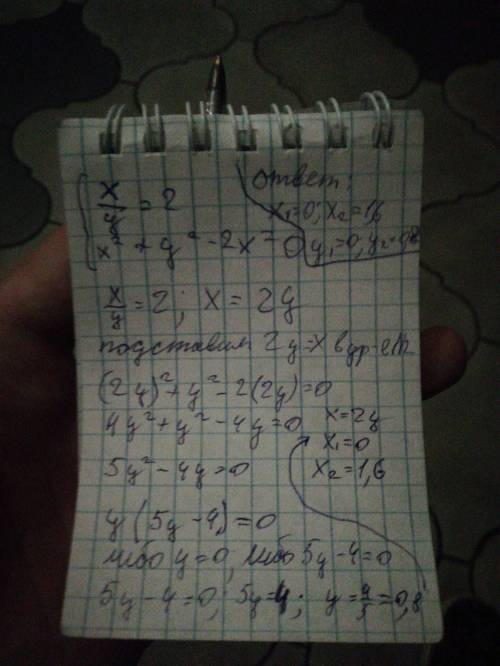 x/y = 2
x² + y² - 2x = 0
Ответ:
x₁=0; x₂=1,6
y₁=0, y₂=0,8
x/y = 2; x = 2y
подставим 2y=x в ур-е
(2y)² + y² - 2(2y)=0
4y² + y² - 4y = 0
5y² - 4y = 0
x=2y
x₁=0
x₂=1,6
y(5y-4)=0
либо y=0, либо 5y-4=0
5y-4=0; 5y=4; y=4/5=0,8